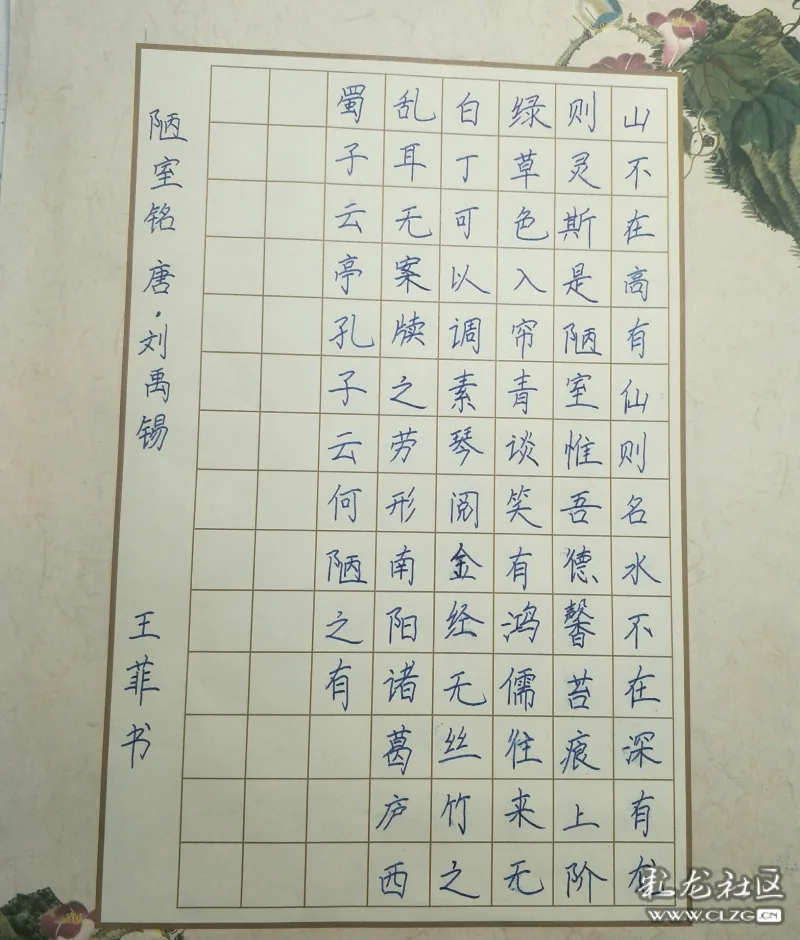 山不在高有仙则名水不在深有龙
则灵斯是陋室惟吾德馨苔痕上阶
绿草色入帘青谈笑有鸿儒往来无
白丁可以调素琴阅金经无丝竹之
乱耳无案牍之劳形南阳诸葛庐西
蜀子云亭孔子云何陋之有
陋室铭 唐·刘禹锡 王菲书
彩龙社区
www.CLZG.CN